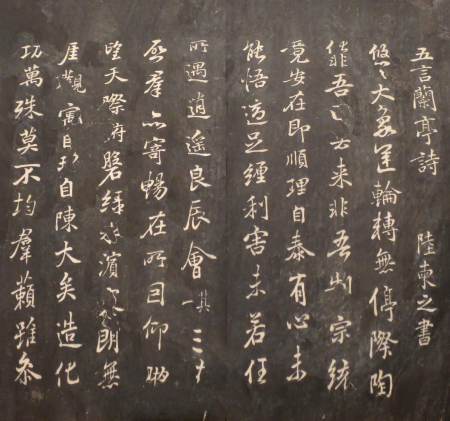 五言蘭亭詩　陸柬之書
悠〻大象運輪轉無停際陶
化非吾因去来非吾制宗統
竟安在即順理自泰有心未
能悟適足纏利害未若任
所遇逍遙良辰會 其一 三春
啟羣品寄暢在所因仰眺
望天際俯磐綠水濱寥朗無
厓觀寓目理自陳大矣造化
功萬殊莫不均羣籟雖參